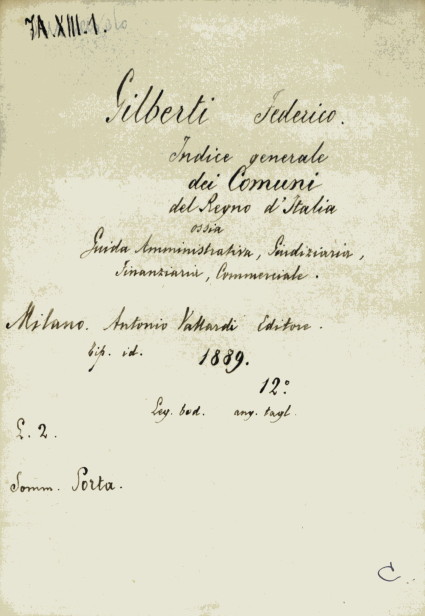 7A.XIII.1.
Gilberti Federico.
Indice generale
dei Comuni
del Regno d'Italia
ossia
Guida Amministrativa, Giudiziaria,
Finanziaria, Commerciale.
Milano. Antonio Vallardi Editore.
tip. id. 1889.
12°
Leg. bod. ang. tagl.
L. 2.
Somm. Porta.
C